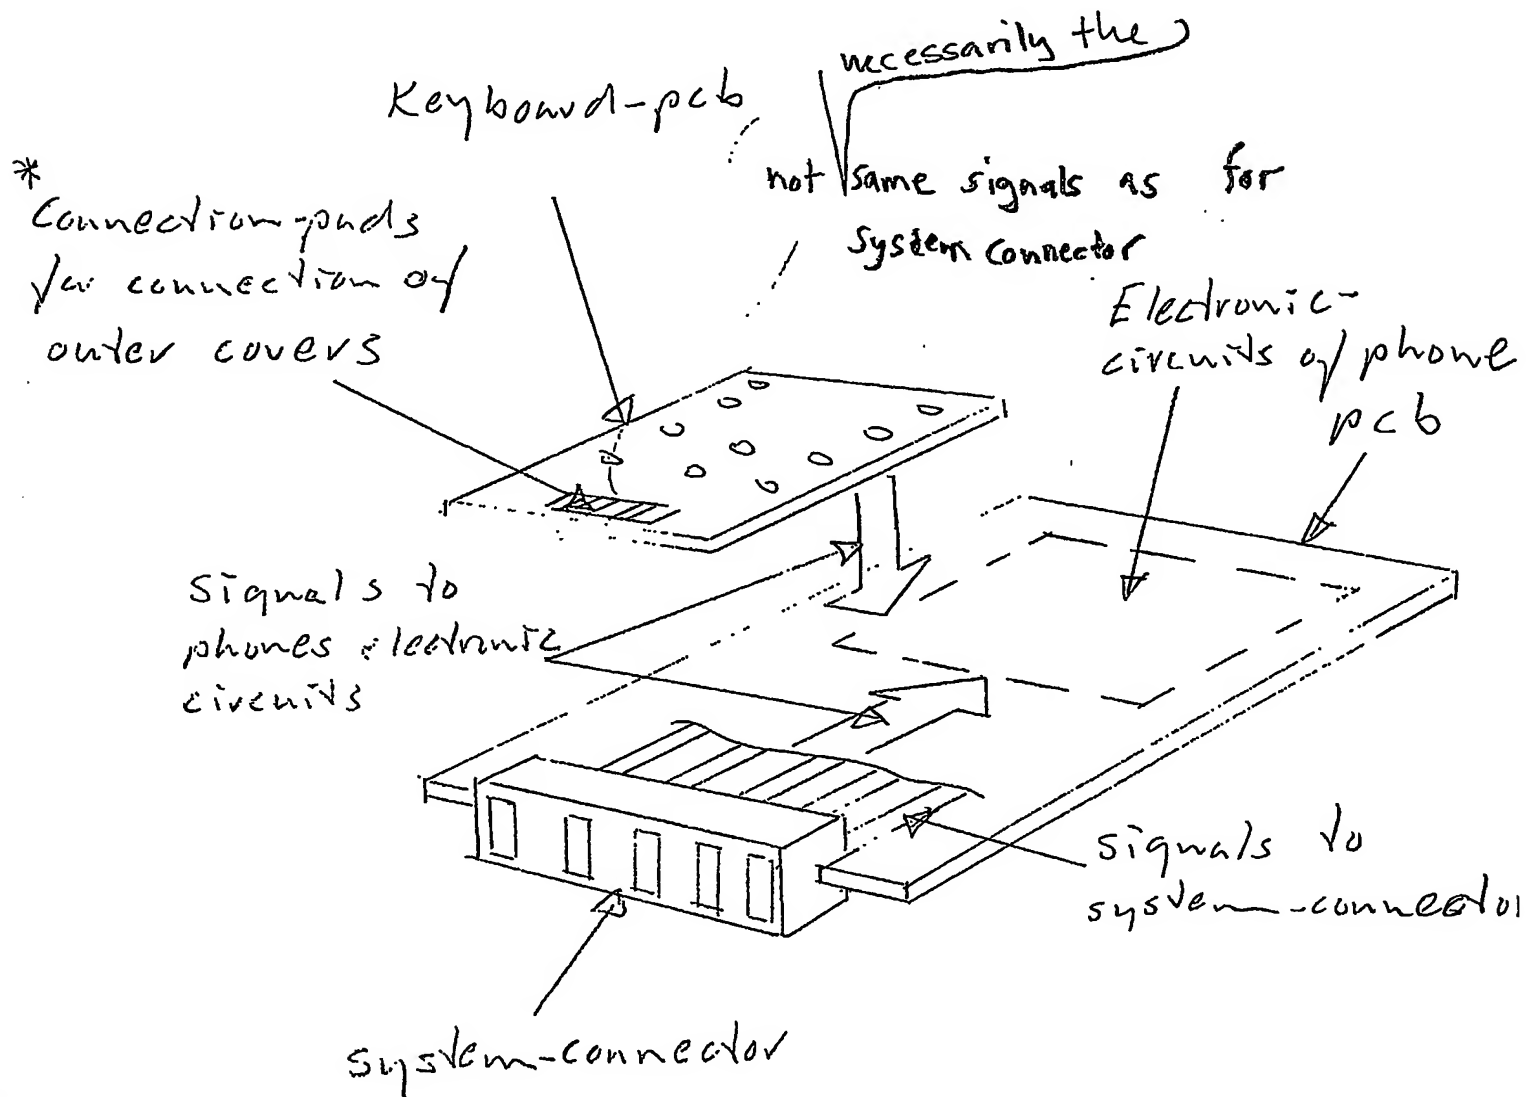 necessarily the
Keyboard-pcb
not same signals as for
system connector
*
Connection-pads
for connection of
outer covers
Electronic-
circuits of phone
pcb
Signals to
phones electronic
circuits
Signals to
system-connector
system-connector